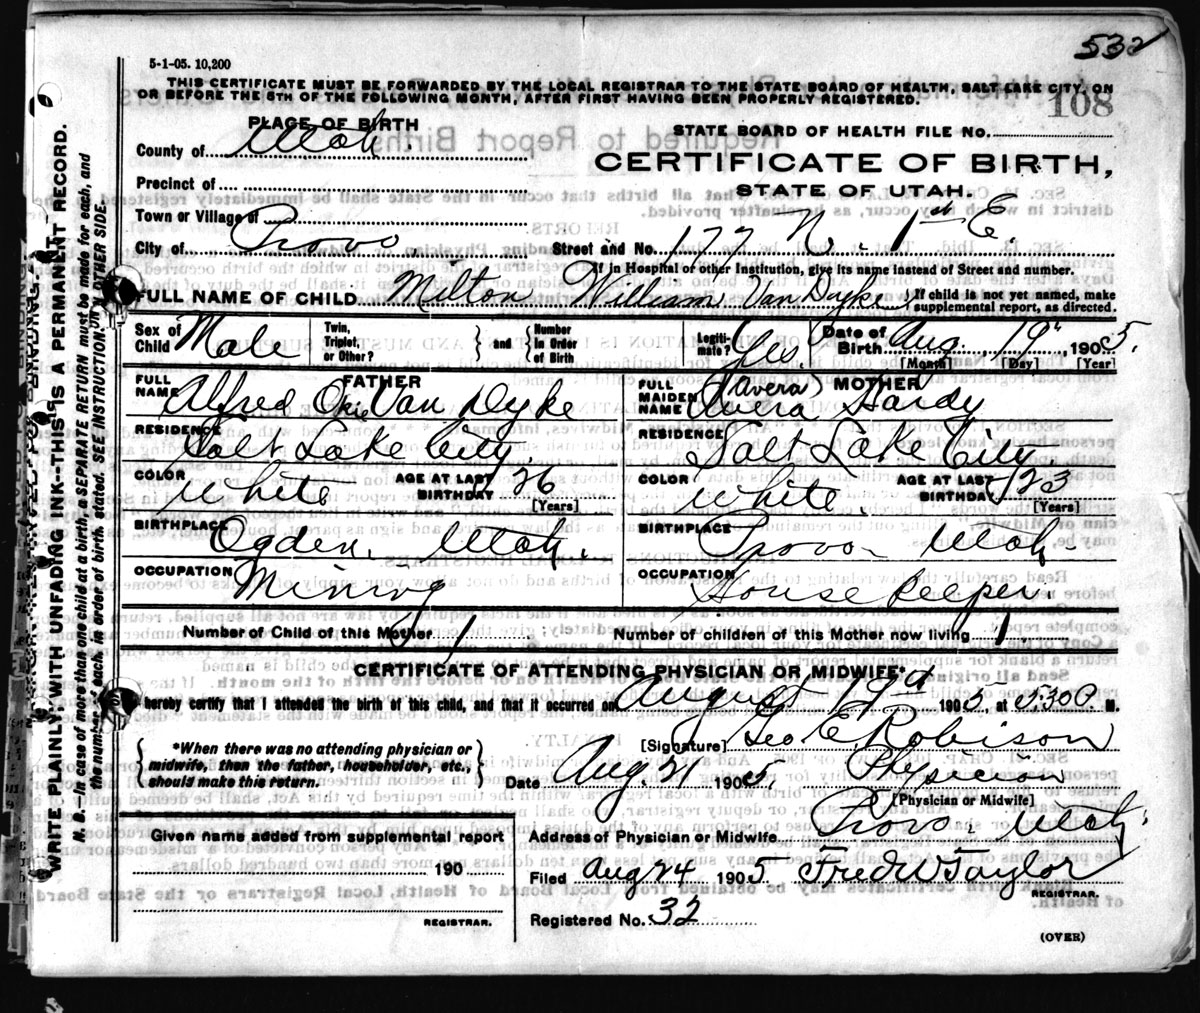 532
5-1-05. 10,200
THIS CERTIFICATE MUST BE FORWARDED BY THE LOCAL REGISTRAR TO THE STATE BOARD OF HEALTH, SALT LAKE CITY, ON
OR BEFORE THE 5TH OF THE FOLLOWING MONTH, AFTER FIRST HAVING BEEN PROPERLY REGISTERED.
108
PLACE OF BIRTH
STATE BOARD OF HEALTH FILE No.
County of Utah.
CERTIFICATE OF BIRTH,
Precinct of
STATE OF UTAH.
Town or Village of
City of Provo Street and No. 177 N. 1st E.
If in Hospital or other Institution, give its name instead of Street and number.
FULL NAME OF CHILD Milton William Van Dyke { If child is not yet named, make
supplemental report, as directed.
Sex of Child Male Twin, Triplet, or Other? } and { Number in Order of Birth Legiti-mate? Yes. Date of Birth Aug. 19" 1905.
[Month] [Day] [Year]
FATHER
FULL NAME Alfred Orie Van Dyke
RESIDENCE Salt Lake City
COLOR White AGE AT LAST BIRTHDAY 26
[Years]
BIRTHPLACE Ogden. Utah.
OCCUPATION Mining
MOTHER
(Tavera)
FULL MAIDEN NAME Hardy
RESIDENCE Salt Lake City
COLOR White. AGE AT LAST BIRTHDAY 23
[Years]
BIRTHPLACE Provo Utah
OCCUPATION House keeper
Number of Child of this Mother 1 Number of children of this Mother now living 1
CERTIFICATE OF ATTENDING PHYSICIAN OR MIDWIFE*
I hereby certify that I attended the birth of this child, and that it occurred on August 19th 1905, at 530 P. M.
*When there was no attending physician or
midwife, then the father, householder, etc.,
should make this return.
[Signature] Geo E Robison
Date Aug 21 1905. Physician
[Physician or Midwife]
Address of Physician or Midwife Provo. Utah.
Given name added from supplemental report
190
REGISTRAR.
Filed Aug 24 1905 Fred W Taylor
REGISTRAR.
Registered No. 32
(OVER)
WRITE PLAINLY WITH UNFADING INK--THIS IS A PERMANENT RECORD.
N. B.--In case of more than one child at a birth, a SEPARATE RETURN must be made for each, and
the number of each, in order of birth, stated. SEE INSTRUCTION ON OTHER SIDE.